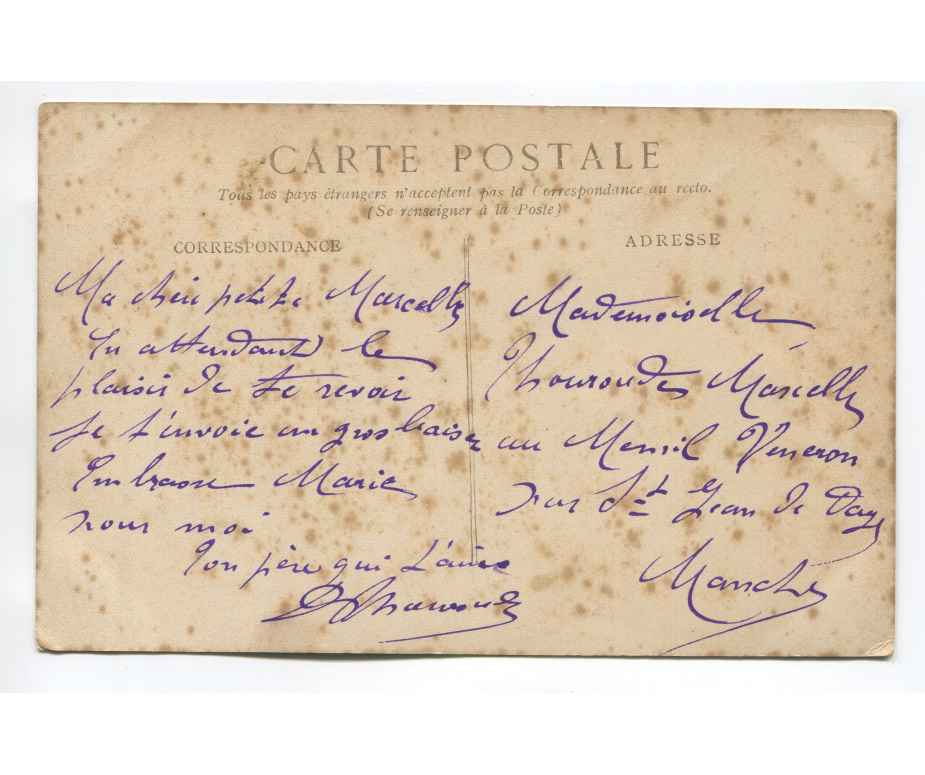 CARTE POSTALE
Tous les pays étrangers n'acceptent pas la Correspondance au recto.
(Se renseigner à la Poste)
CORRESPONDANCE
Ma chère petite Marcelle
En attendant le
plaisir de te revoir
je t'envoie un gros baiser
Embrasse Marie
pour moi
Ton père qui t'aime
ADRESSE
Mademoiselle
Thouroude Marcelle
au Mesnil Veneron
par St Jean de Daye
Manche